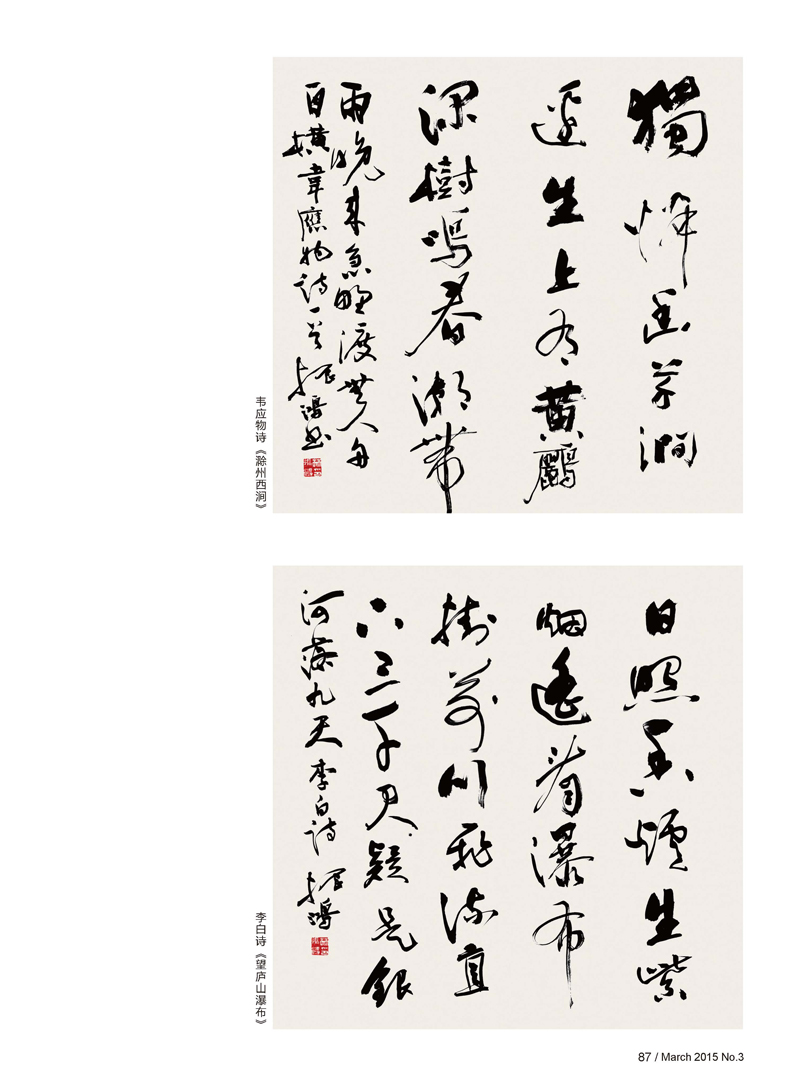 獨憐幽草澗
邊生上有黃鸝
深樹鳴春潮帶
雨晚來急野渡無人舟
自橫韋應物詩一首振鴻書
韦应物诗《滁州西涧》
日照香爐生紫
烟遙看瀑布
掛前川飛流直
下三千尺疑是銀
河落九天李白詩振鴻
李白诗《望庐山瀑布》
87 / March 2015 No.3